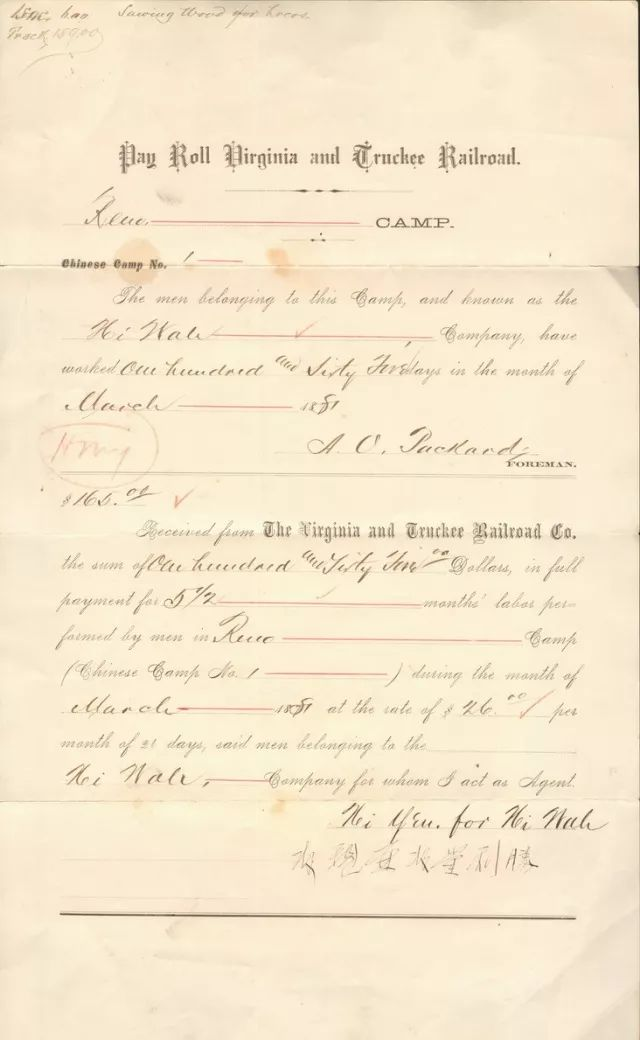 Sawing Wood for Locos.
Track 189.00
Pay Roll Virginia and Truckee Railroad.
Reno. CAMP.
Chinese Camp No. 1
The men belonging to this Camp, and known as the
Hi Wah Company, have
worked One hundred and Sixty Five days in the month of
March 1881
A. O. Packard
FOREMAN.
$165.00
Received from The Virginia and Truckee Railroad Co.
the sum of One hundred and Sixty Five 00 Dollars, in full
payment for 5 1/2 months' labor per=
formed by men in Reno Camp
(Chinese Camp No. 1 ) during the month of
March 1881 at the rate of $ 26.00 per
month of 21 days, said men belonging to the
Hi Wah, Company for whom I act as Agent.
Hi Yeu. for Hi Wah
利勝